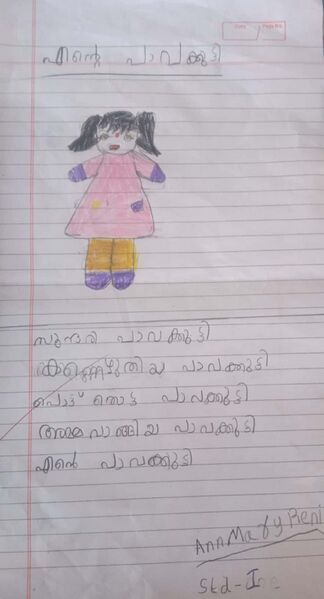 Date
Page No.
എന്റെ പാവക്കുട്ടി
സുന്ദരി പാവക്കുട്ടി
കണ്ണെഴുതിയ പാവക്കുട്ടി
പൊട്ട് തൊട്ട പാവക്കുട്ടി
അമ്മ വാങ്ങിയ പാവക്കുട്ടി
എന്റെ പാവക്കുട്ടി
Ann Mary Reni
Std-I